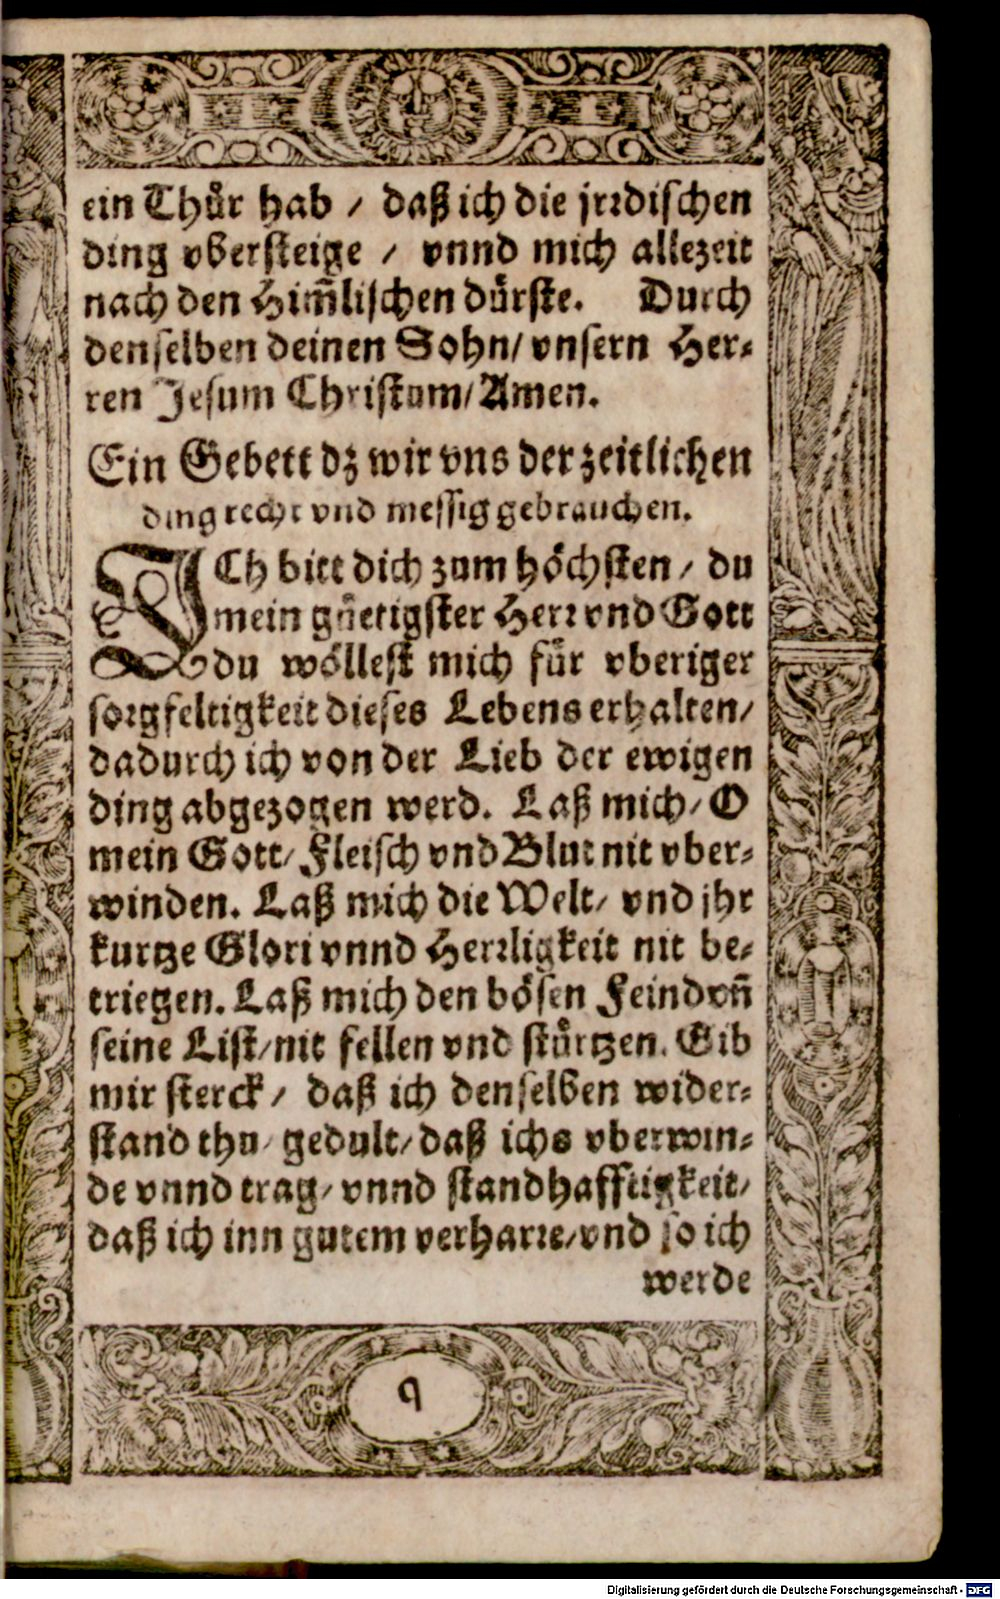 ein Thuͤr hab / daß ich die jrꝛdischen
ding vbersteige / vnnd mich allezeit
nach den Him̃lischen duͤrste. Durch
denselben deinen Sohn/ vnsern Her⸗
ren Jesum Christum/ Amen.
Ein Gebett dz wir vns der zeitlichen
ding recht vnd messig gebrauchen.
ICh bitt dich zum hoͤchsten / du
mein guͤetigster Herꝛ vnd Gott
du woͤllest mich fuͤr vberiger
sorgfeltigkeit dieses Lebens erhalten/
dadurch ich von der Lieb der ewigen
ding abgezogen werd. Laß mich/ O
mein Gott/ Fleisch vnd Blut nit vber⸗
winden. Laß mich die Welt/ vnd jhr
kurtze Glori vnnd Herꝛligkeit nit be⸗
triegen. Laß mich den boͤsen Feind vñ
seine List/ nit fellen vnd stuͤrtzen. Gib
mir sterck / daß ich denselben wider⸗
stand thu/ gedult/ daß ichs vberwin⸗
de vnnd trag/ vnnd standhafftigkeit/
daß ich inn gutem verharꝛe/ vnd so ich
werde
9
Digitalisierung gefördert durch die Deutsche Forschungsgemeinschaft - DFG